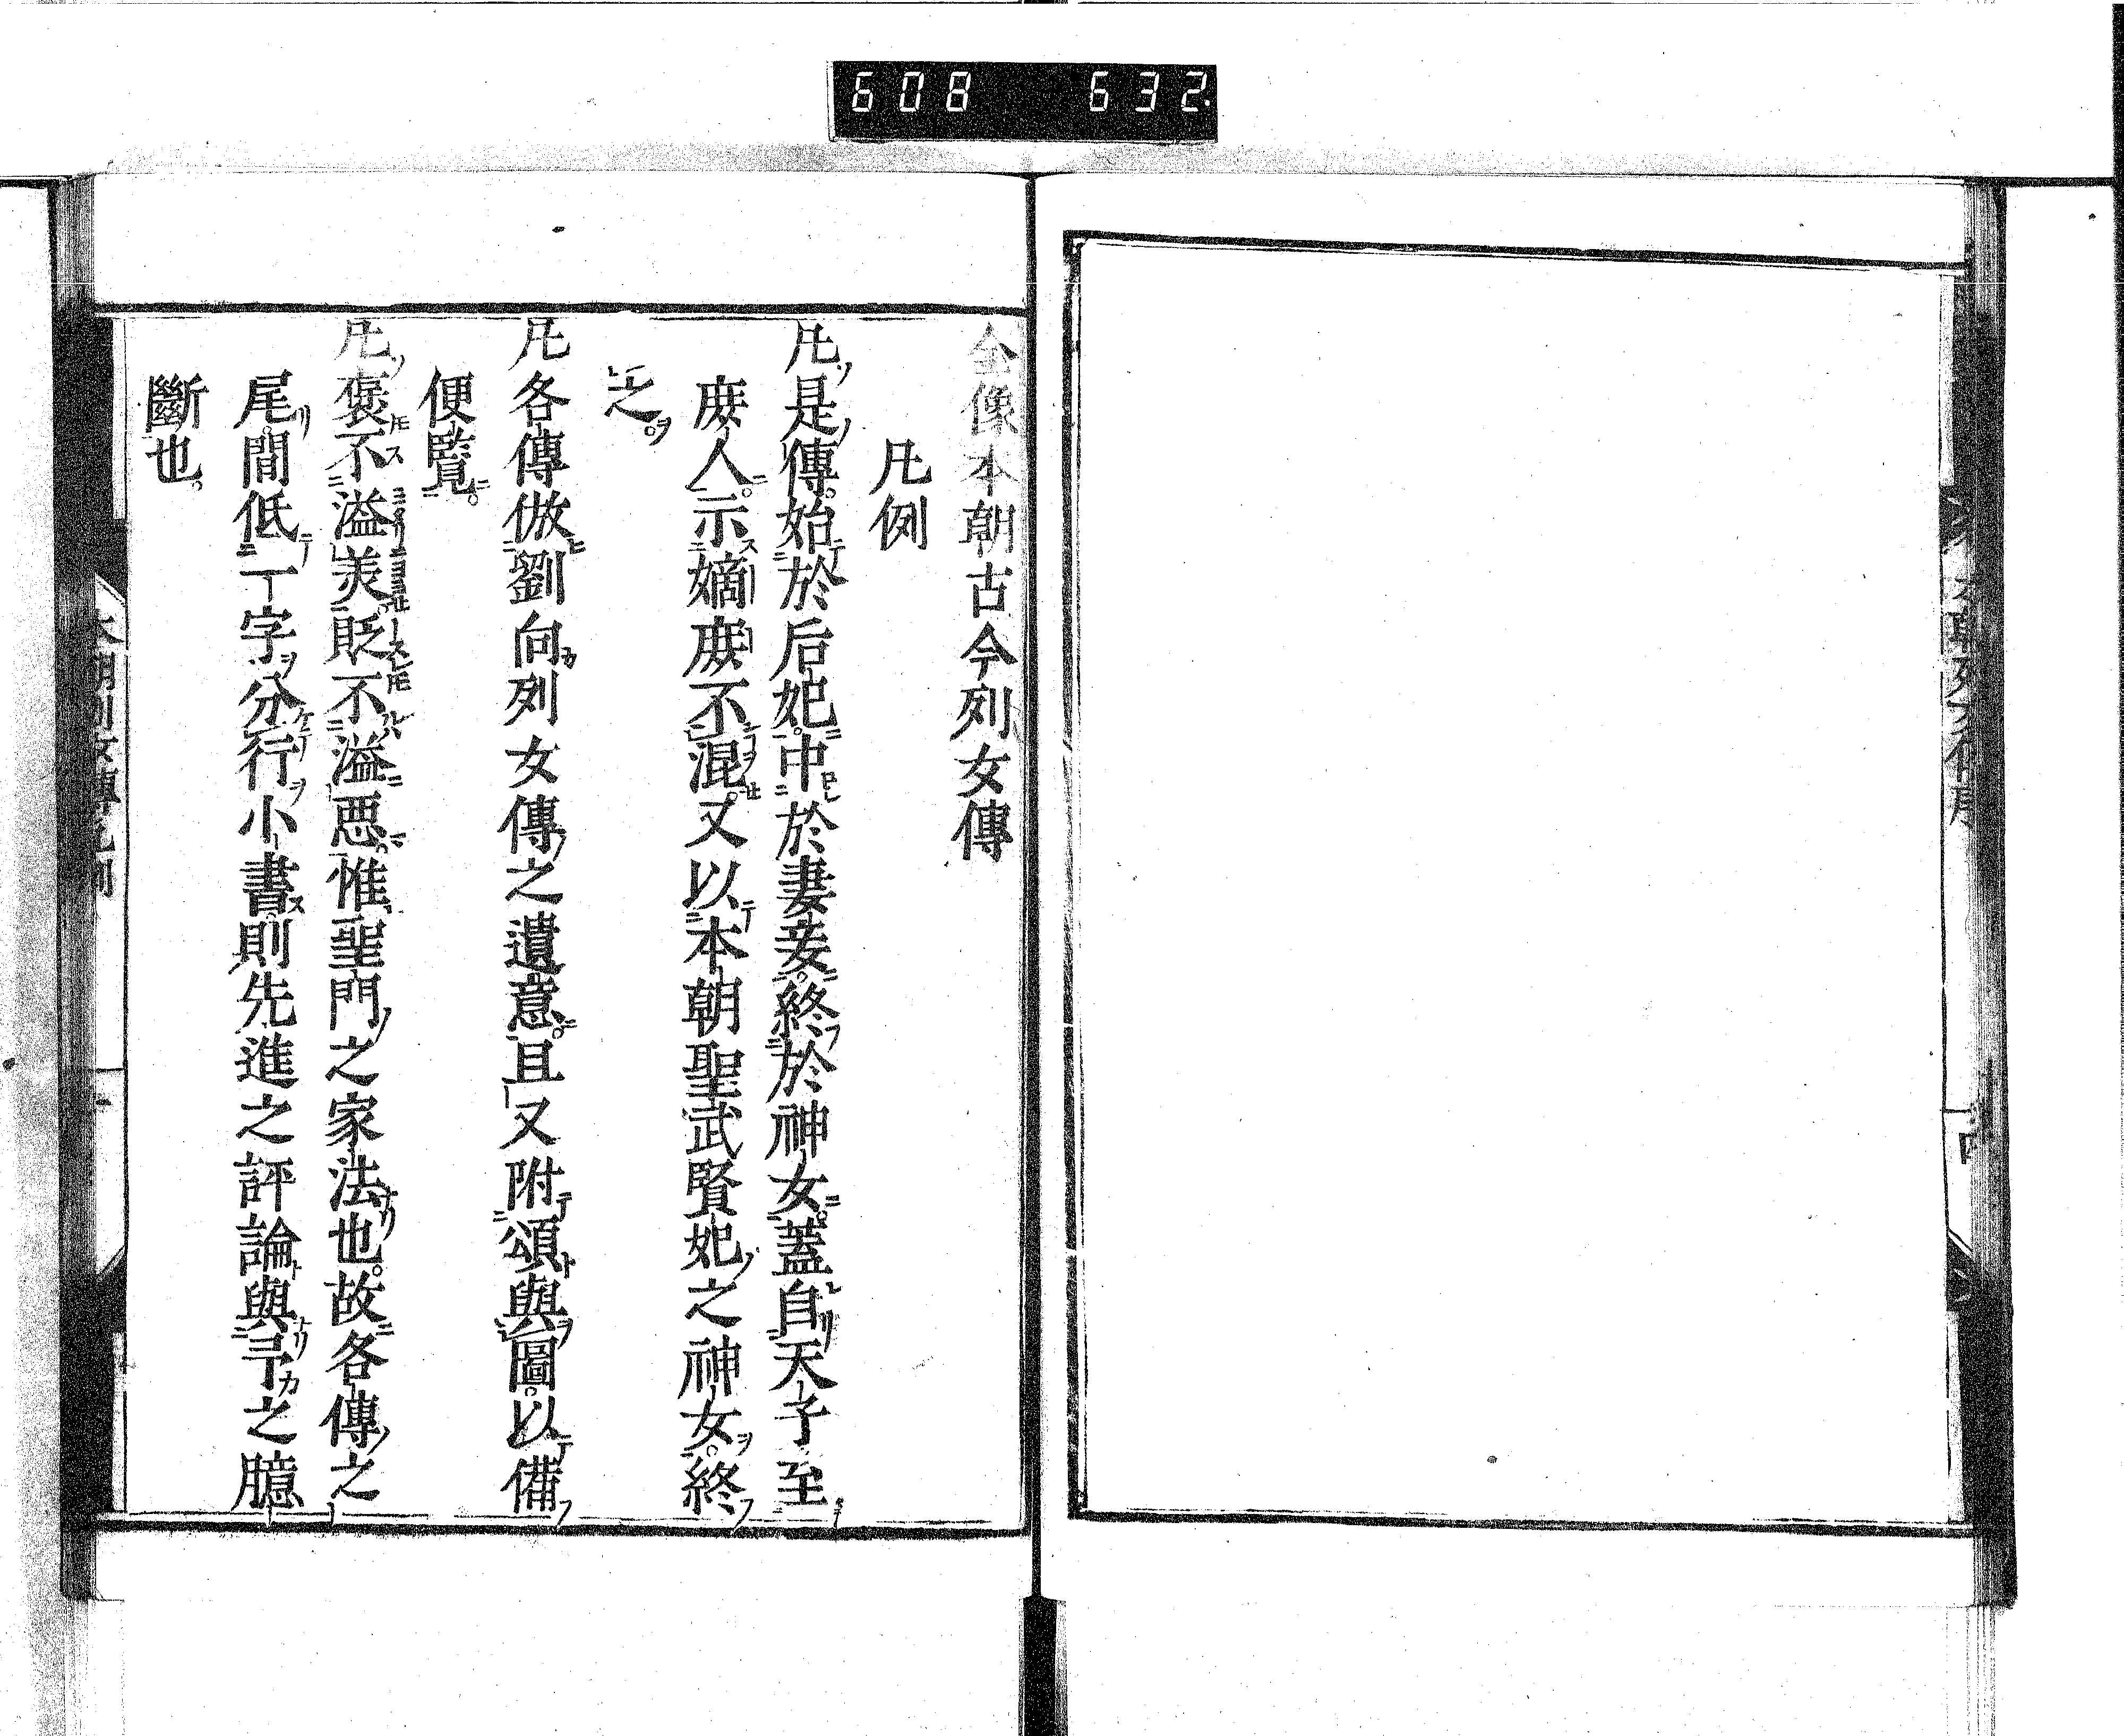 608 632
全像本朝古今列女傳
凡例
凡是傳始於后妃中於妻妾終於神女蓋自天子至
庶人示嫡庶不混又以本朝聖武賢妃之神女終
之
凡各傳倣劉向列女傳之遺意且又附頌與圖以備
便覽
凡褒不溢美貶不溢惡惟聖門之家法也故各傳之
尾間低一字分行小書則先進之評論與予之臆
斷也
本朝列女傳凡例